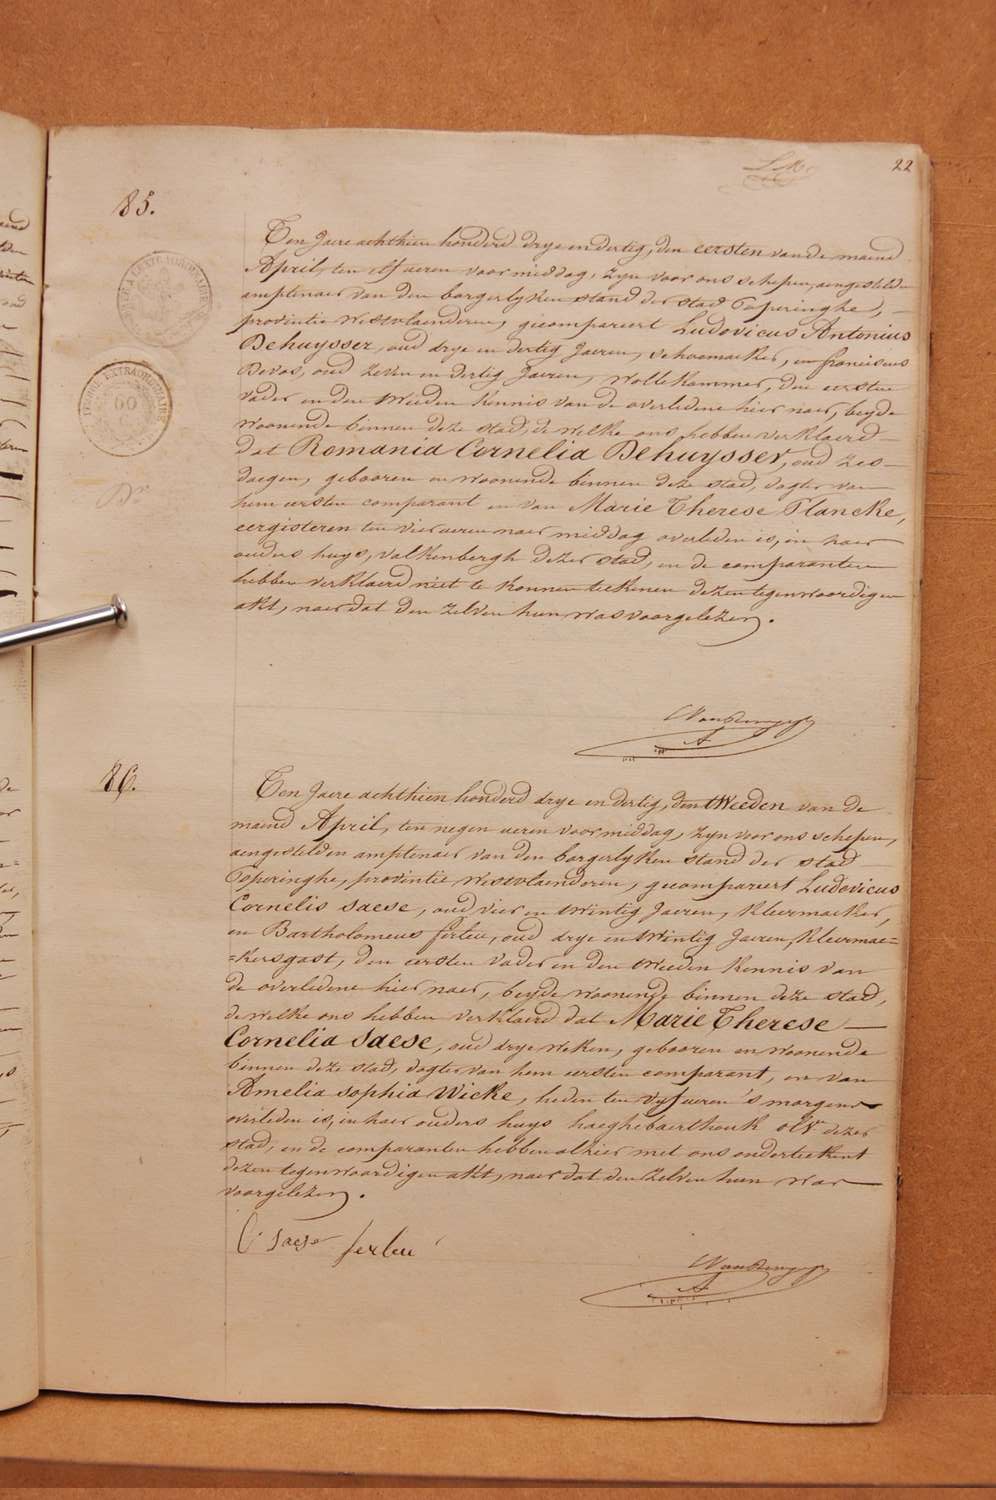 22
85.
Ten Jaere achthien honderd drye en dertig, den eersten van de maend
April, ten elf ueren voormiddag, zyn voor ons schepen, aengestelde
amptenaer van den borgerlyken stand der stad Poperinghe,
provintie Westvlaenderen, gecompareert Ludovicus Antonius
Dehuysser, oud drye en dertig Jaeren, schoemaeker, en franciscus
Devos, oud zeven en dertig Jaeren, wollekammer, den eersten
vader en den tweeden kennis van de overledene hier naer, beyde
woonende binnen deze stad, de welke ons hebben verklaerd
dat Romania Cornelia Dehuysser, oud zes
daegen, gebooren en woonende binnen deze stad, dogter van
hem eersten comparant en van Marie Therese Plancke,
eergisteren ten vier ueren naer middag overleden is, in haer
ouders huys, valkenbergh dezer stad, en de comparanten
hebben verklaerd niet te konnen teekenen dezen tegenwoordigen
akt, naer dat den zelven hun was voorgelezen.
TIMBRE EXTRAORDINAIRE
60
86.
Ten Jaere achthien honderd drye en dertig, den tweeden van de
maend April, ten negen ueren voormiddag, zyn voor ons schepen,
aengestelden amptenaer van den borgerlyken stand der stad
Poperinghe, provintie Westvlaenderen, gecompareert Ludovicus
Cornelis Saese, oud vier en twintig Jaeren, kleermaeker,
en Bartholomeus ferleu, oud drye en twintig Jaeren, kleermae=
=kersgast, den eersten vader en den tweeden kennis van
de overledene hier naer, beyde woonende binnen deze stad,
de welke ons hebben verklaerd dat Marie Therese
Cornelia Saese, oud drye weken, gebooren en woonende
binnen deze stad, dogter van hem eersten comparant, en van
Amelia Sophia Wicke, heden ten vyf ueren 's morgens
overleden is, in haer ouders huys dezer
stad, en de comparanten hebben alhier met ons onderteekent
dezen tegenwoordigen akt, naer dat den zelven hun was
voorgelezen.
Saese ferleu